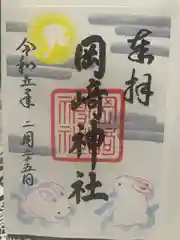 奉拝
岡崎神社
令和五年二月二十五日